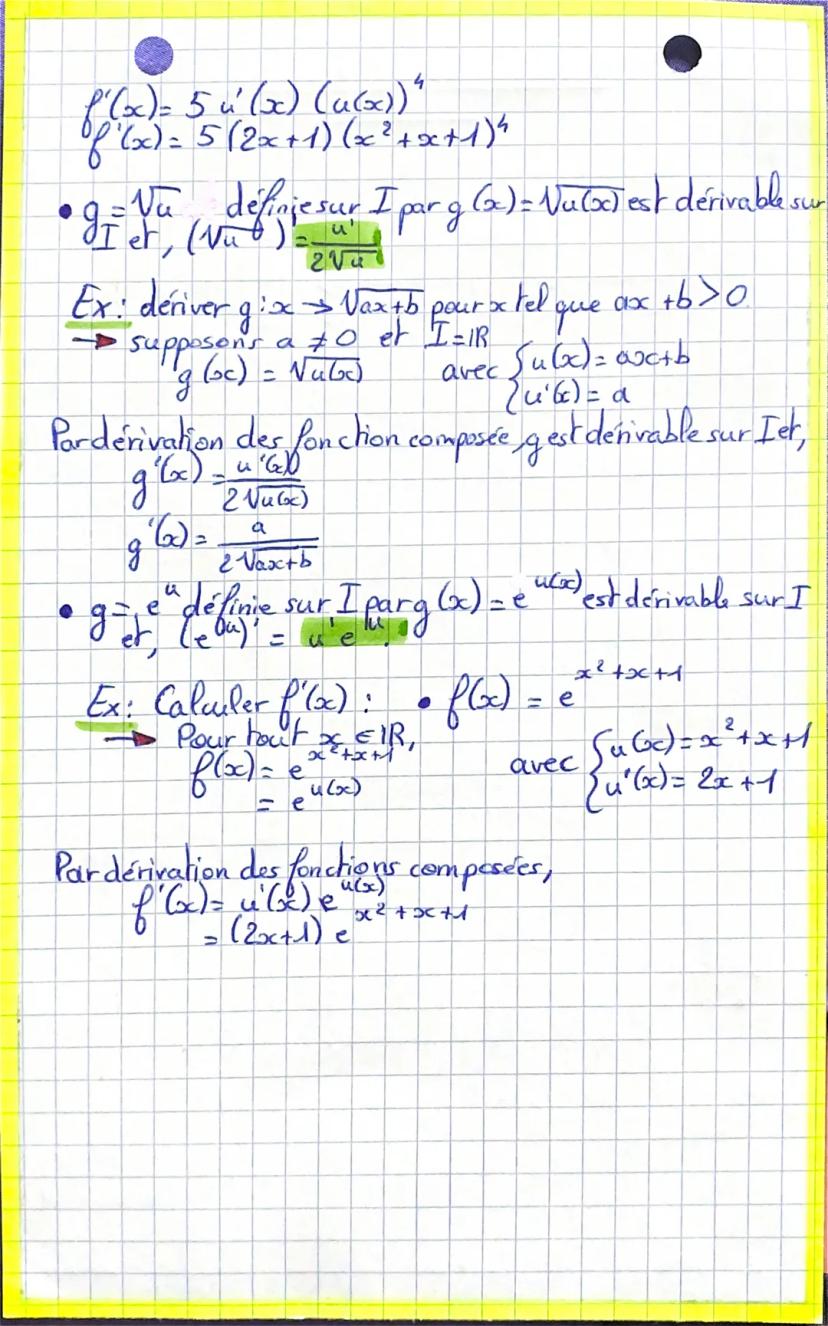 f'(x) = 5 u'(x) (u(x))⁴
f'(x) = 5 (2x+1) (x²+x+1)⁴
• g = √u définie sur I par g(x) = √u(x) est dérivable sur
I et, (√u)' = u'/2√u
Ex: dériver g : x → √ax+b pour x tel que ax + b > 0
→ supposons a ≠ 0 et I = IR
g(x) = √u(x) avec { u(x) = ax+b
{ u'(x) = a
Par dérivation des fonction composée, g est dérivable sur I et,
g'(x) = u'(x)/2√u(x)
g'(x) = a/2√ax+b
• g = e^u définie sur I par g(x) = e^u(x) est dérivable sur I
et, (e^u)' = u' e^u.
Ex: Calculer f'(x) : • f(x) = e^x²+x+1
→ Pour tout x ∈ IR,
f(x) = e^x²+x+1 avec { u(x) = x²+x+1
= e^u(x) { u'(x) = 2x+1
Par dérivation des fonctions composées,
f'(x) = u'(x) e^u(x)
= (2x+1) e^x²+x+1